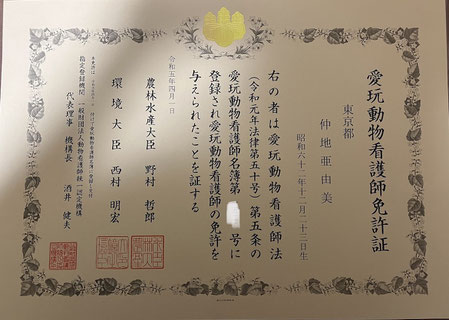 愛玩動物看護師免許証
東京都
仲地亜由美
昭和六十二年十二月二十三日生
右の者は愛玩動物看護師法
（令和元年法律第五十号）第五条の
愛玩動物看護師名簿第　号に
登録され愛玩動物看護師の免許を
与えられたことを証する
令和五年四月一日
農林水産大臣　野村　哲郎
環境大臣　西村　明宏
指定登録機関　一般財団法人動物看護師統一認定機構
代表理事　機構長　酒井　健夫